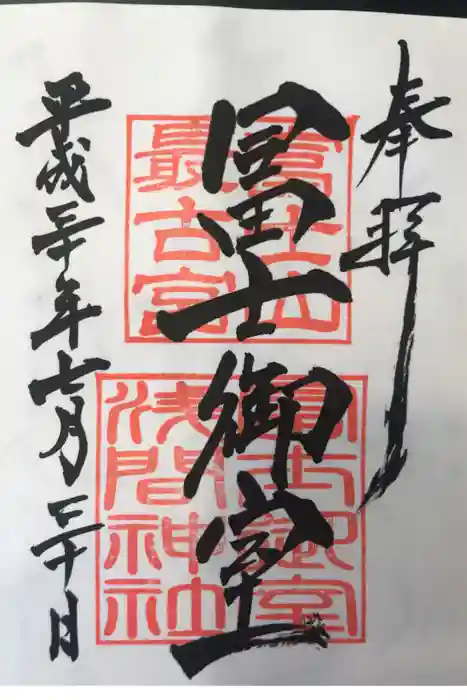 奉拝
冨士御室
富士山
最古宮
冨士御室
浅間神社
平成三十年七月三十日